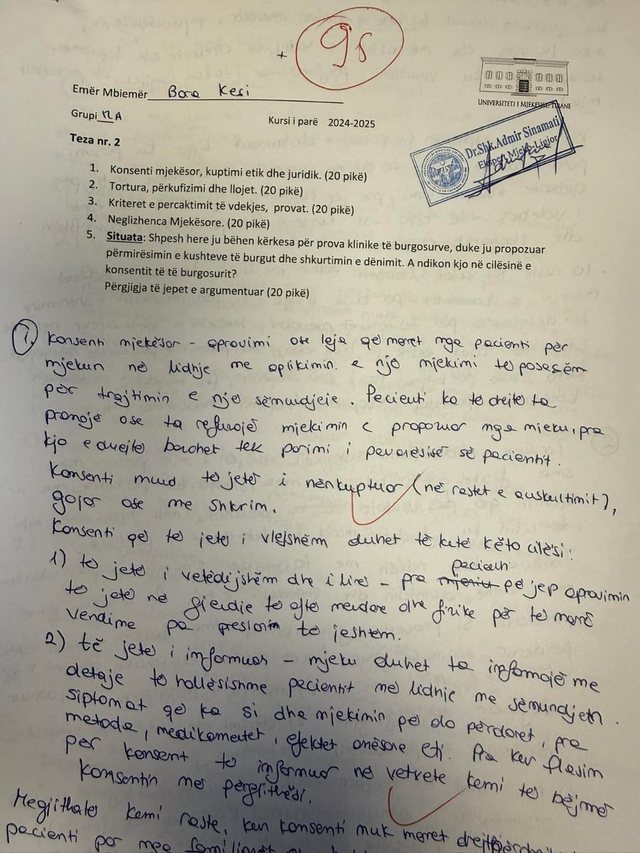 + 95
Emër Mbiemër Bora Kesi
UNIVERSITETI I MJEKËSISË, TIRANË
Grupi 12A
Kursi i parë 2024-2025
Teza nr. 2
Dr.Shk.Admir Sinamati
Ekspert Mjeko-Ligjor
1. Konsenti mjekësor, kuptimi etik dhe juridik. (20 pikë)
2. Tortura, përkufizimi dhe llojet. (20 pikë)
3. Kriteret e percaktimit të vdekjes, provat. (20 pikë)
4. Neglizhenca Mjekësore. (20 pikë)
5. Situata: Shpesh here ju bëhen kërkesa për prova klinike të burgosurve, duke ju propozuar
përmirësimin e kushteve të burgut dhe shkurtimin e dënimit. A ndikon kjo në cilësinë e
konsentit të të burgosurit?
Përgjigja të jepet e argumentuar (20 pikë)
1. Konsenti mjekësor - aprovimi ose leja që merret nga pacienti për
mjekun në lidhje me aplikimin e një mjekimi të posaçëm
për trajtimin e një sëmundjeje. Pacienti ka të drejtë ta
pranojë ose ta refuzojë mjekimin e propozuar nga mjeku, pra
kjo e drejtë bazohet tek parimi i pavarësisë së pacientit.
Konsenti mund të jetë i nënkuptuar (në rastet e auskultimit),
gojor ose me shkrim.
Konsenti që të jetë i vlefshëm duhet të ketë këto cilësi:
1) të jetë i vetëdijshëm dhe i lirë - pra pacienti që jep aprovimin
të jetë në gjendje të aftë mendore dhe fizike për të marrë
vendime pa presion të jashtëm.
2) të jetë i informuar - mjeku duhet ta informojë me
detaje të hollësishme pacientit në lidhje me sëmundjen,
siptomat që ka si dhe mjekimin që do përdoret, pra
metoda, medikamentet, efektet anësore etj. Pra kur flasim
për konsent të informuar në vetvete kemi të bëjmë
konsentin në përgjithësi.
Megjithatë kemi raste, kur konsenti nuk merret
pacienti por nga